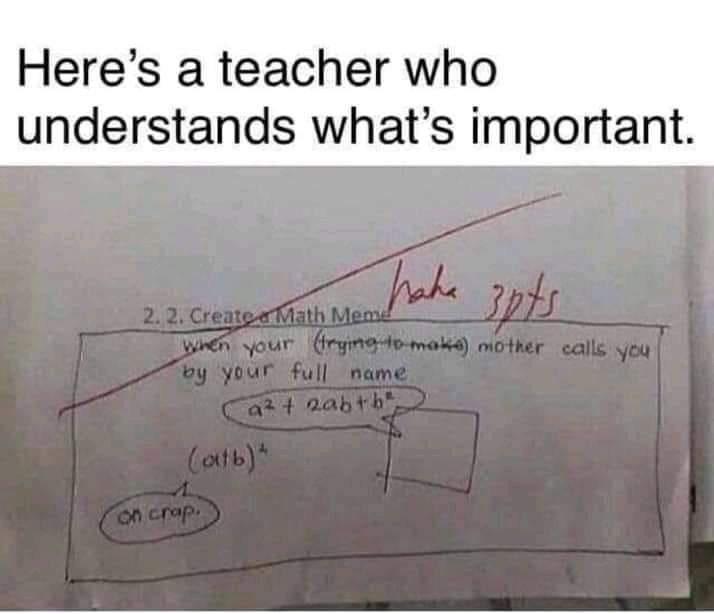 Here's a teacher who
understands what's important.
haha 3pts
2. 2. Create a Math Meme
when your (trying to make) mother calls you
by your full name
a² + 2ab+b²
(a+b)²
oh crap.